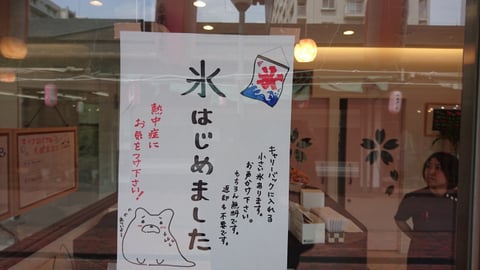 氷
氷はじめました
キャリーバックに入れる
小さい氷あります。
お声かけ下さい。
もちろん無料です。
返却も不要です。
熱中症に
お気をつけ下さい!